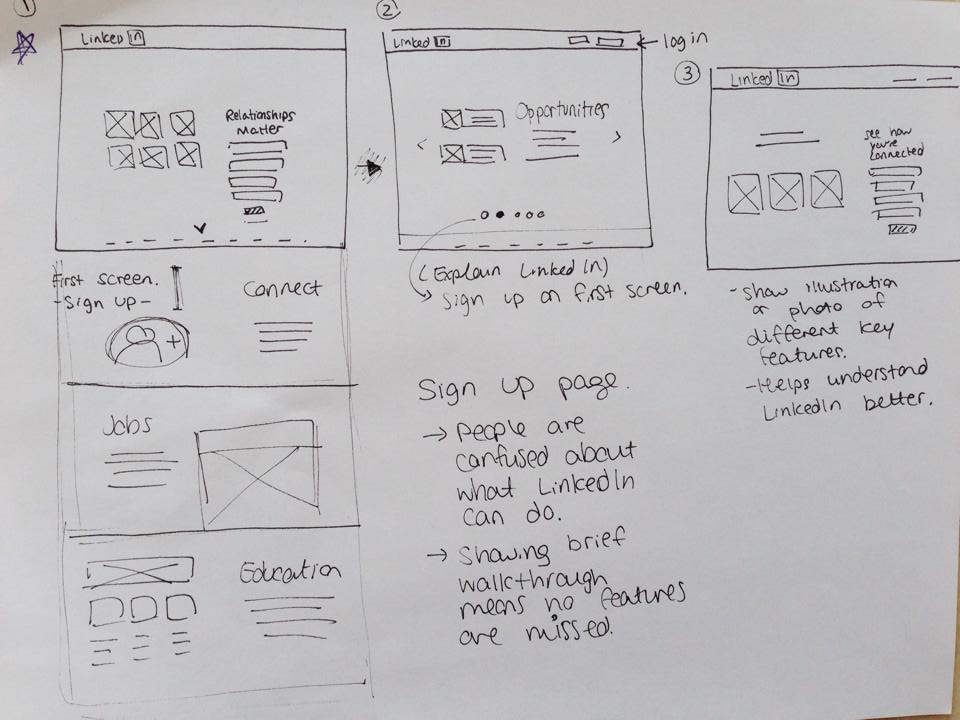 1
Linked in
Relationships
Matter
First screen.
- Sign up -
Connect
Jobs
Education
2
Linked in
log in
Opportunities
(Explain LinkedIn)
Sign up on first screen.
3
Linked in
see how
you're
connected
- Show illustration
or photo of
different key
features.
- Helps understand
LinkedIn better.
Sign up page.
→ People are
confused about
what LinkedIn
can do.
→ Showing brief
walkthrough
means no features
are missed.